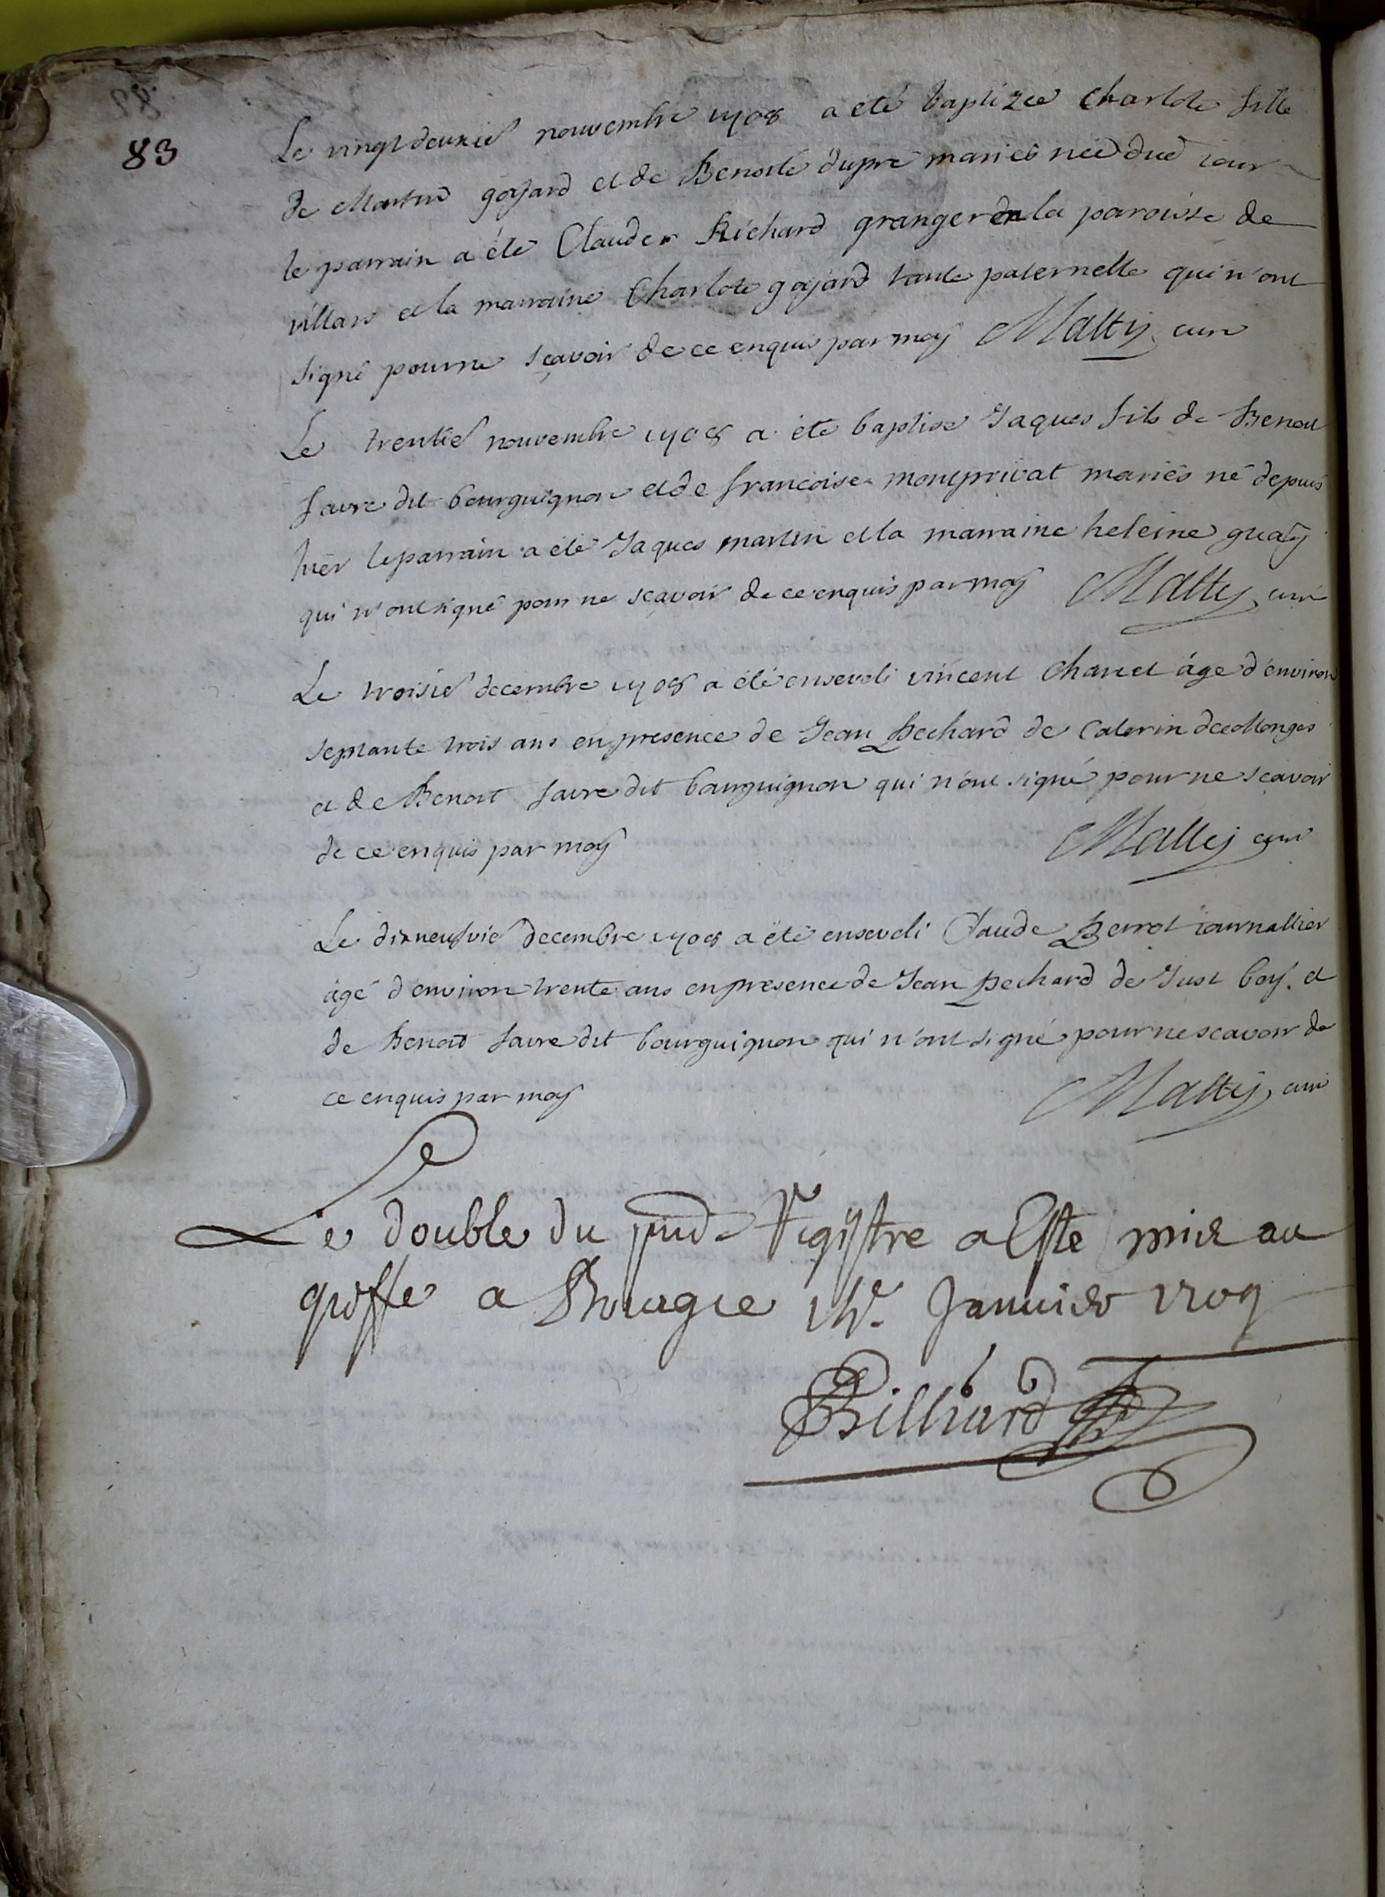 83
Le vingtdeuxie nouvembre 1708 a eté baptizée Charlote fille
de Martin gojard et de Benoite dupré mariés née dud iour
le parrain a été Claude Richard granger en la paroisse de
villars et la marraine Charlote gojard tante paternelle qui n'ont
signé pour ne sçavoir de ce enquis par moy Mattij curé
Le trentie nouvembre 1708 a eté baptisé Jaques fils de Benoit
favre dit bourguignon et de francoise mariés né depuis
hier le parrain a été Jaques martin et la marraine heleine
qui n'ont signé pour ne sçavoir de ce enquis par moy Mattij curé
Le troisie decembre 1708 a été enseveli vincent Chanet âgé d'environ
septante trois ans en presence de Jean Bechard de Caterin decollonges
et de Benoit favre dit bourguignon qui n'ont signé pour ne scavoir
de ce enquis par moy Mattij curé
Le dixneufvie decembre 1708 a eté enseveli Claude Berrot iournallier
âgé d'environ trente ans en presence de Jean Bechard de Just boy. et
de Benoit favre dit bourguignon qui n'ont signé pour ne scavoir de
ce enquis par moy Mattij curé
Le double du pnd Registre a Esté mis au
greffe a Bourg ce Janvier 1709
Billiard